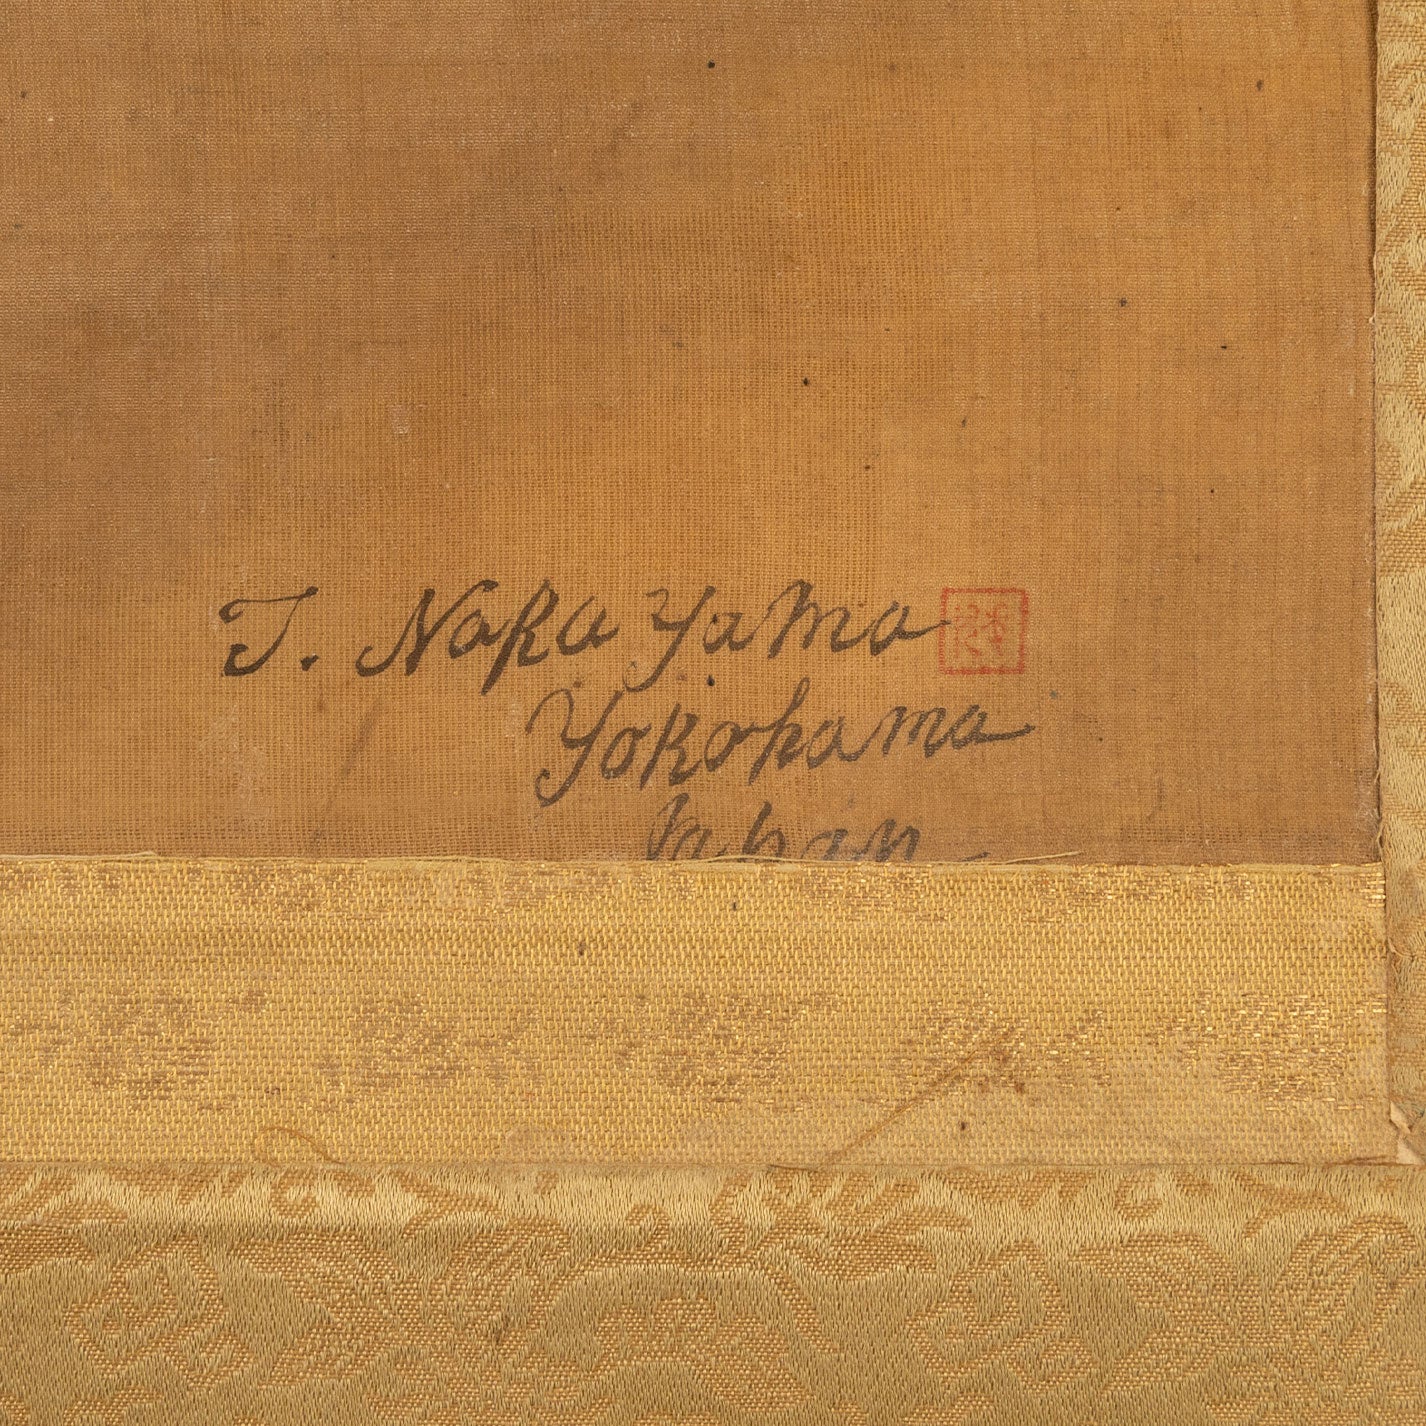 T. NaKa Yama
YoKohama
Japan